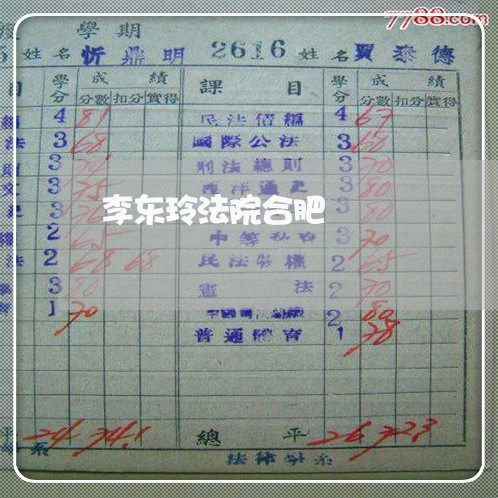 7788.com
學期
5 姓名 忻鼎明 2616 姓名 賈泰德
目 學分 成績 課目 學分 成績
分數 扣分 實得 分數 扣分 實得
4 81 民法債編 4 67
法 3 68 國際公法 3 60
3 刑法總則 3 70
文 3 75 西洋通史 3 80
3 80
權 2 65 3 70
法 2 68 68 民法物權 2 65
3 80 憲法 2 70
育 1 70 2 80
普通體育 1 78
李东玲法院合肥
平 24 74.1 總平 26 72.3
系 法律學系